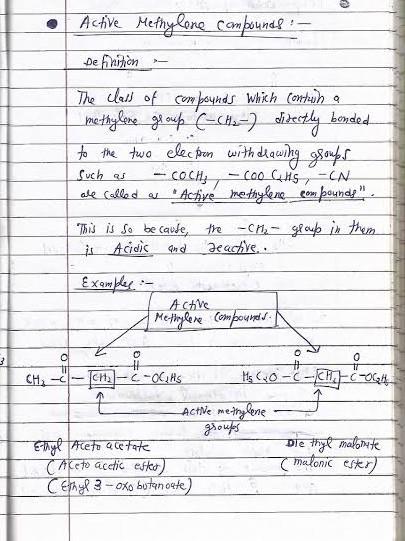 Active Methylene compounds :—
Definition :—
The class of compounds which contain a
methylene group (-CH2-) directly bonded
to the two electron withdrawing groups
Such as — COCH3, — COO C2H5, -CN
are called as "Active methylene compounds".
This is so because, the -CH2- group in them
is Acidic and reactive.
Examples :—
Active
Methylene Compounds.
O O O O
CH3 — C — CH2 — C — OC2H5 H5C2O — C — CH2 — C — OC2H5
Active methylene
groups
Ethyl Aceto acetate Die thyl malonate
(Aceto acetic ester) (malonic ester)
(Ethyl 3 - oxo butanoate)